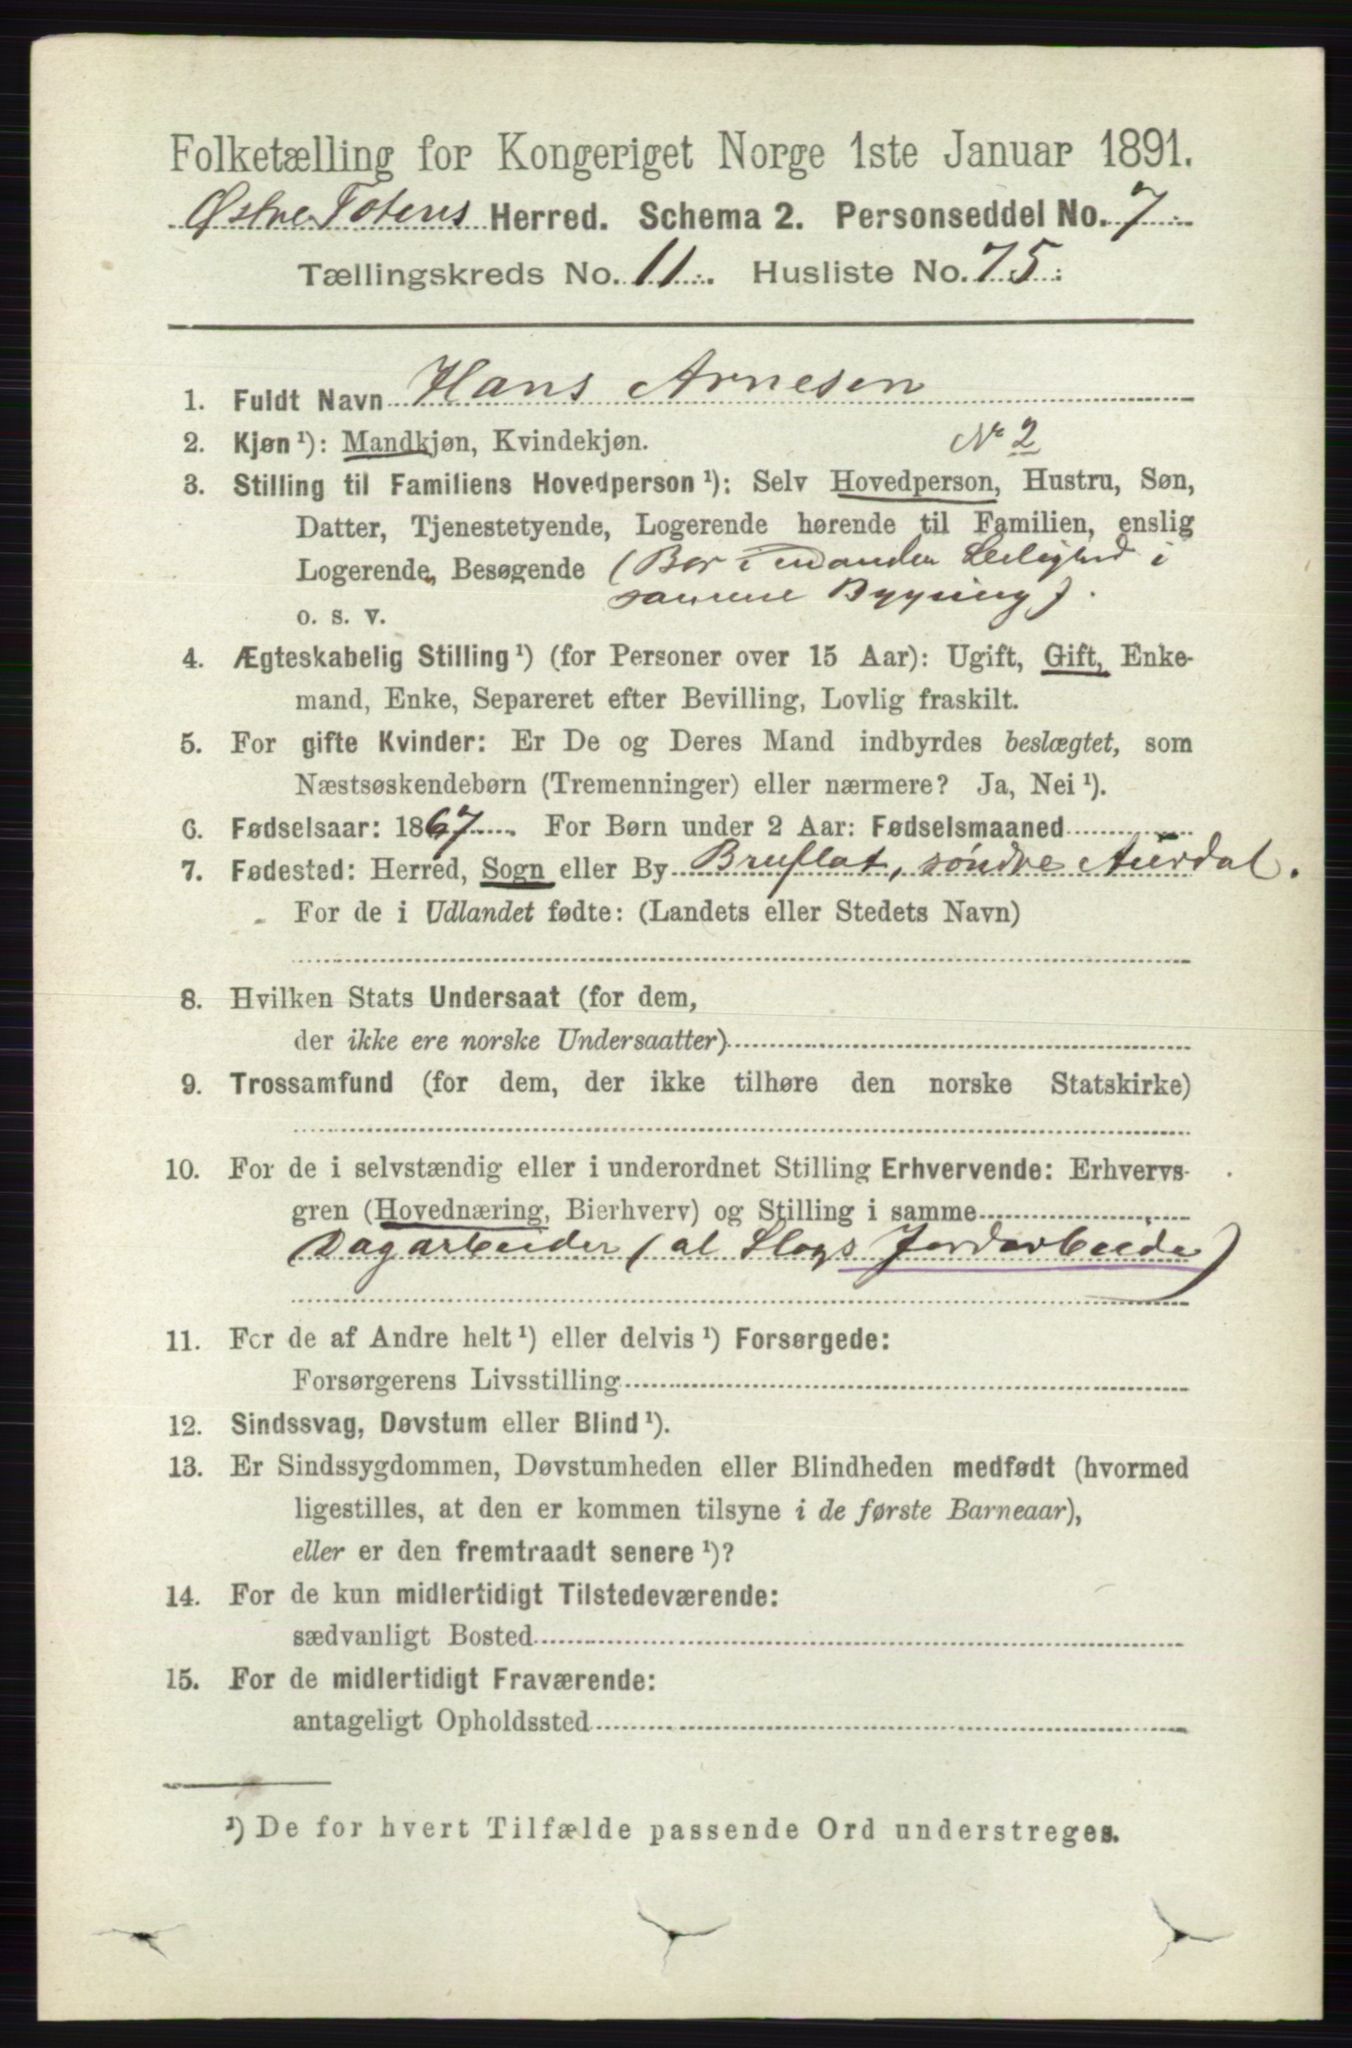 Folketælling for Kongeriget Norge 1ste Januar 1891.
Østre Totens Herred. Schema 2. Personseddel No. 7
Tællingskreds No. 11. Husliste No. 75
1. Fuldt Navn Hans Arnesen
2. Kjøn ¹): Mandkjøn, Kvindekjøn. No 2
3. Stilling til Familiens Hovedperson ¹): Selv Hovedperson, Hustru, Søn,
Datter, Tjenestetyende, Logerende hørende til Familien, enslig
Logerende, Besøgende (Bor i en anden Leilighed i
samme Bygning).
o. s. v.
4. Ægteskabelig Stilling ¹) (for Personer over 15 Aar): Ugift, Gift, Enke-
mand, Enke, Separeret efter Bevilling, Lovlig fraskilt.
5. For gifte Kvinder: Er De og Deres Mand indbyrdes beslægtet, som
Næstsøskendebørn (Tremenninger) eller nærmere? Ja, Nei ¹).
6. Fødselsaar: 1867 For Børn under 2 Aar: Fødselsmaaned
7. Fødested: Herred, Sogn eller By Bruflat, søndre Aurdal.
For de i Udlandet fødte: (Landets eller Stedets Navn)
8. Hvilken Stats Undersaat (for dem,
der ikke ere norske Undersaatter)
9. Trossamfund (for dem, der ikke tilhøre den norske Statskirke)
10. For de i selvstændig eller i underordnet Stilling Erhvervende: Erhvervs-
gren (Hovednæring, Bierhverv) og Stilling i samme
Dagarbeider (al Slags Jordarbeide)
11. For de af Andre helt ¹) eller delvis ¹) Forsørgede:
Forsørgerens Livsstilling
12. Sindssvag, Døvstum eller Blind ¹).
13. Er Sindssygdommen, Døvstumheden eller Blindheden medfødt (hvormed
ligestilles, at den er kommen tilsyne i de første Barneaar),
eller er den fremtraadt senere ¹)?
14. For de kun midlertidigt Tilstedeværende:
sædvanligt Bosted
15. For de midlertidigt Fraværende:
antageligt Opholdssted
¹) De for hvert Tilfælde passende Ord understreges.